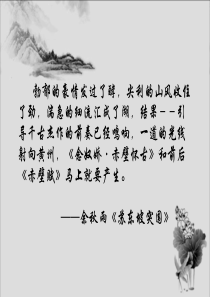 勃郁的豪情发过了酵，尖利的山风收住
了劲，湍急的细流汇成了湖，结果--引
导千古杰作的前奏已经鸣响，一道的光线
射向黄州，《念奴娇·赤壁怀古》和前后
《赤壁赋》马上就要产生。
——余秋雨《苏东坡突围》